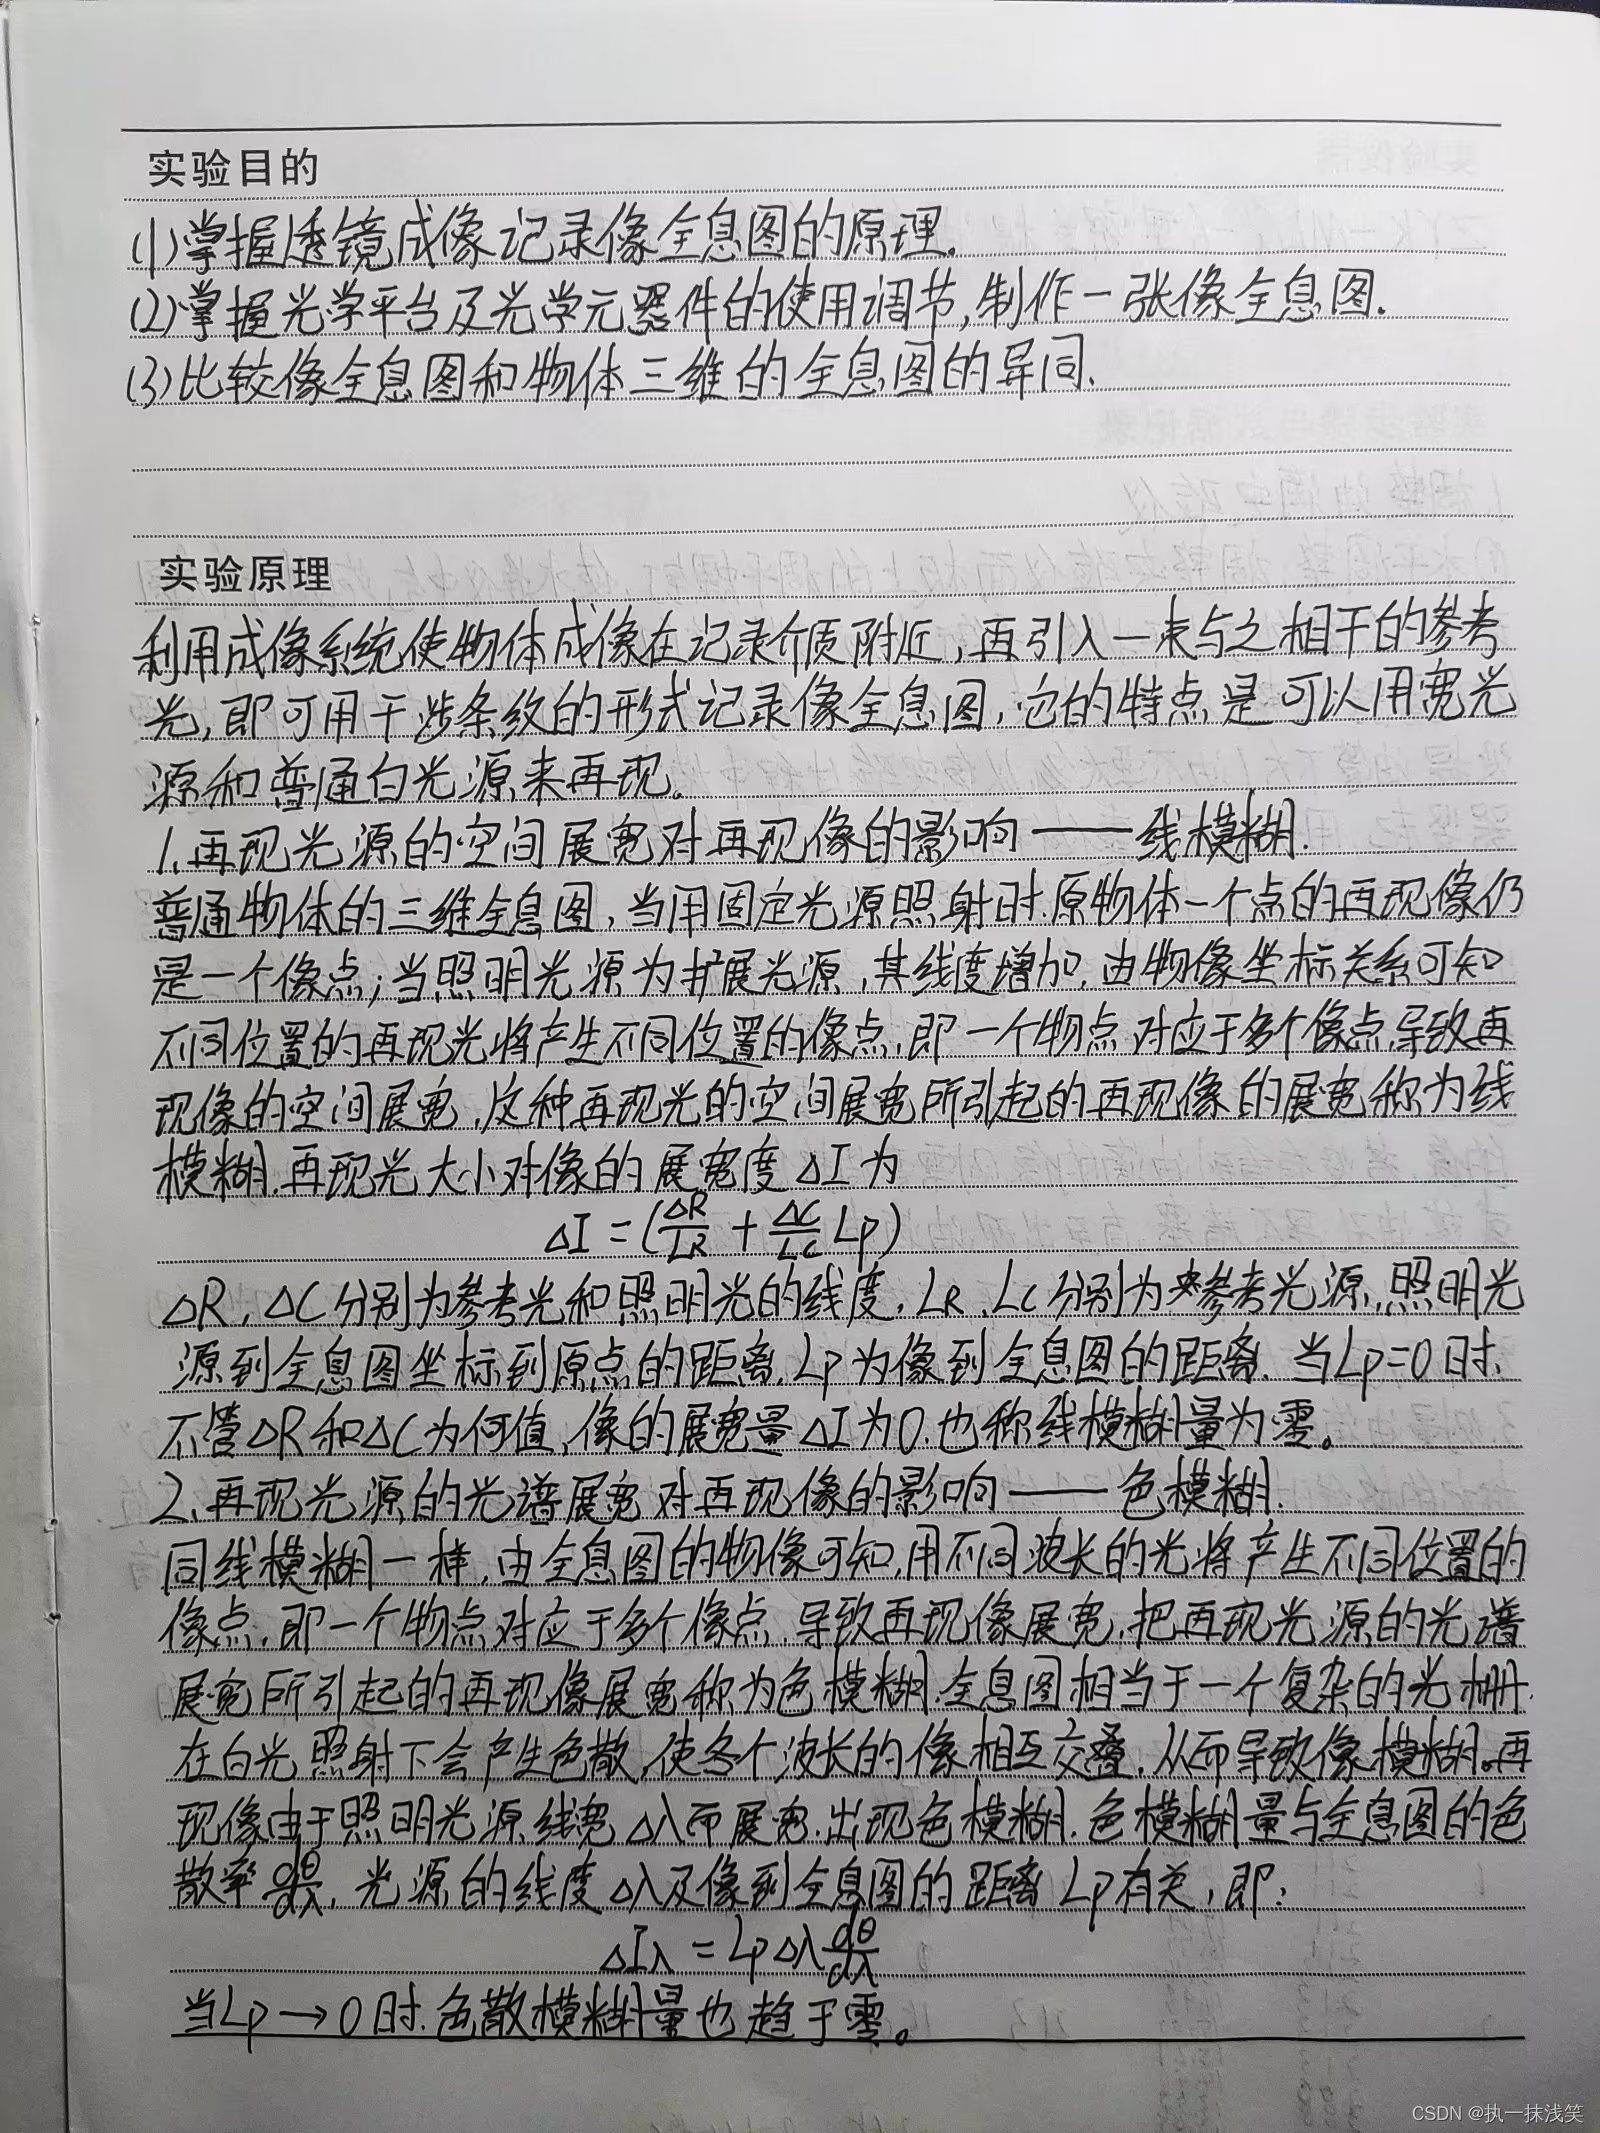 实验目的
(1)掌握透镜成像记录像全息图的原理.
(2)掌握光学平台及光学元器件的使用调节,制作一张像全息图.
(3)比较像全息图和物体三维的全息图的异同.
实验原理
利用成像系统使物体成像在记录介质附近,再引入一束与之相干的参考
光,即可用干涉条纹的形式记录像全息图,它的特点是可以用宽光
源和普通白光源来再现.
1.再现光源的空间展宽对再现像的影响——线模糊.
普通物体的三维全息图,当用固定光源照射时.原物体一个点的再现像仍
是一个像点;当照明光源为扩展光源,其线度增加,由物像坐标关系可知
不同位置的再现光将产生不同位置的像点,即一个物点对应于多个像点,导致再
现像的空间展宽,这种再现光的空间展宽所引起的再现像的展宽称为线
模糊.再现光大小对像的展宽度ΔI为
ΔI=(ΔR/LR + ΔC/LC Lp)
ΔR,ΔC分别为参考光和照明光的线度,LR、LC分别为参考光源,照明光
源到全息图坐标到原点的距离,Lp为像到全息图的距离.当Lp=0时.
不管ΔR和ΔC为何值,像的展宽量ΔI为0.也称线模糊量为零。
2.再现光源的光谱展宽对再现像的影响——色模糊.
同线模糊一样,由全息图的物像可知,用不同波长的光将产生不同位置的
像点,即一个物点对应于多个像点,导致再现像展宽,把再现光源的光谱
展宽所引起的再现像展宽称为色模糊.全息图相当于一个复杂的光栅.
在白光照射下会产生色散,使各个波长的像相互交叠,从而导致像模糊。再
现像由于照明光源线宽Δλ而展宽.出现色模糊.色模糊量与全息图的色
散率dθ/dλ,光源的线度Δλ及像到全息图的距离Lp有关,即:
ΔIλ=LpΔλdθ/dλ
当Lp→0时.色散模糊量也趋于零。
CSDN @执一抹浅笑